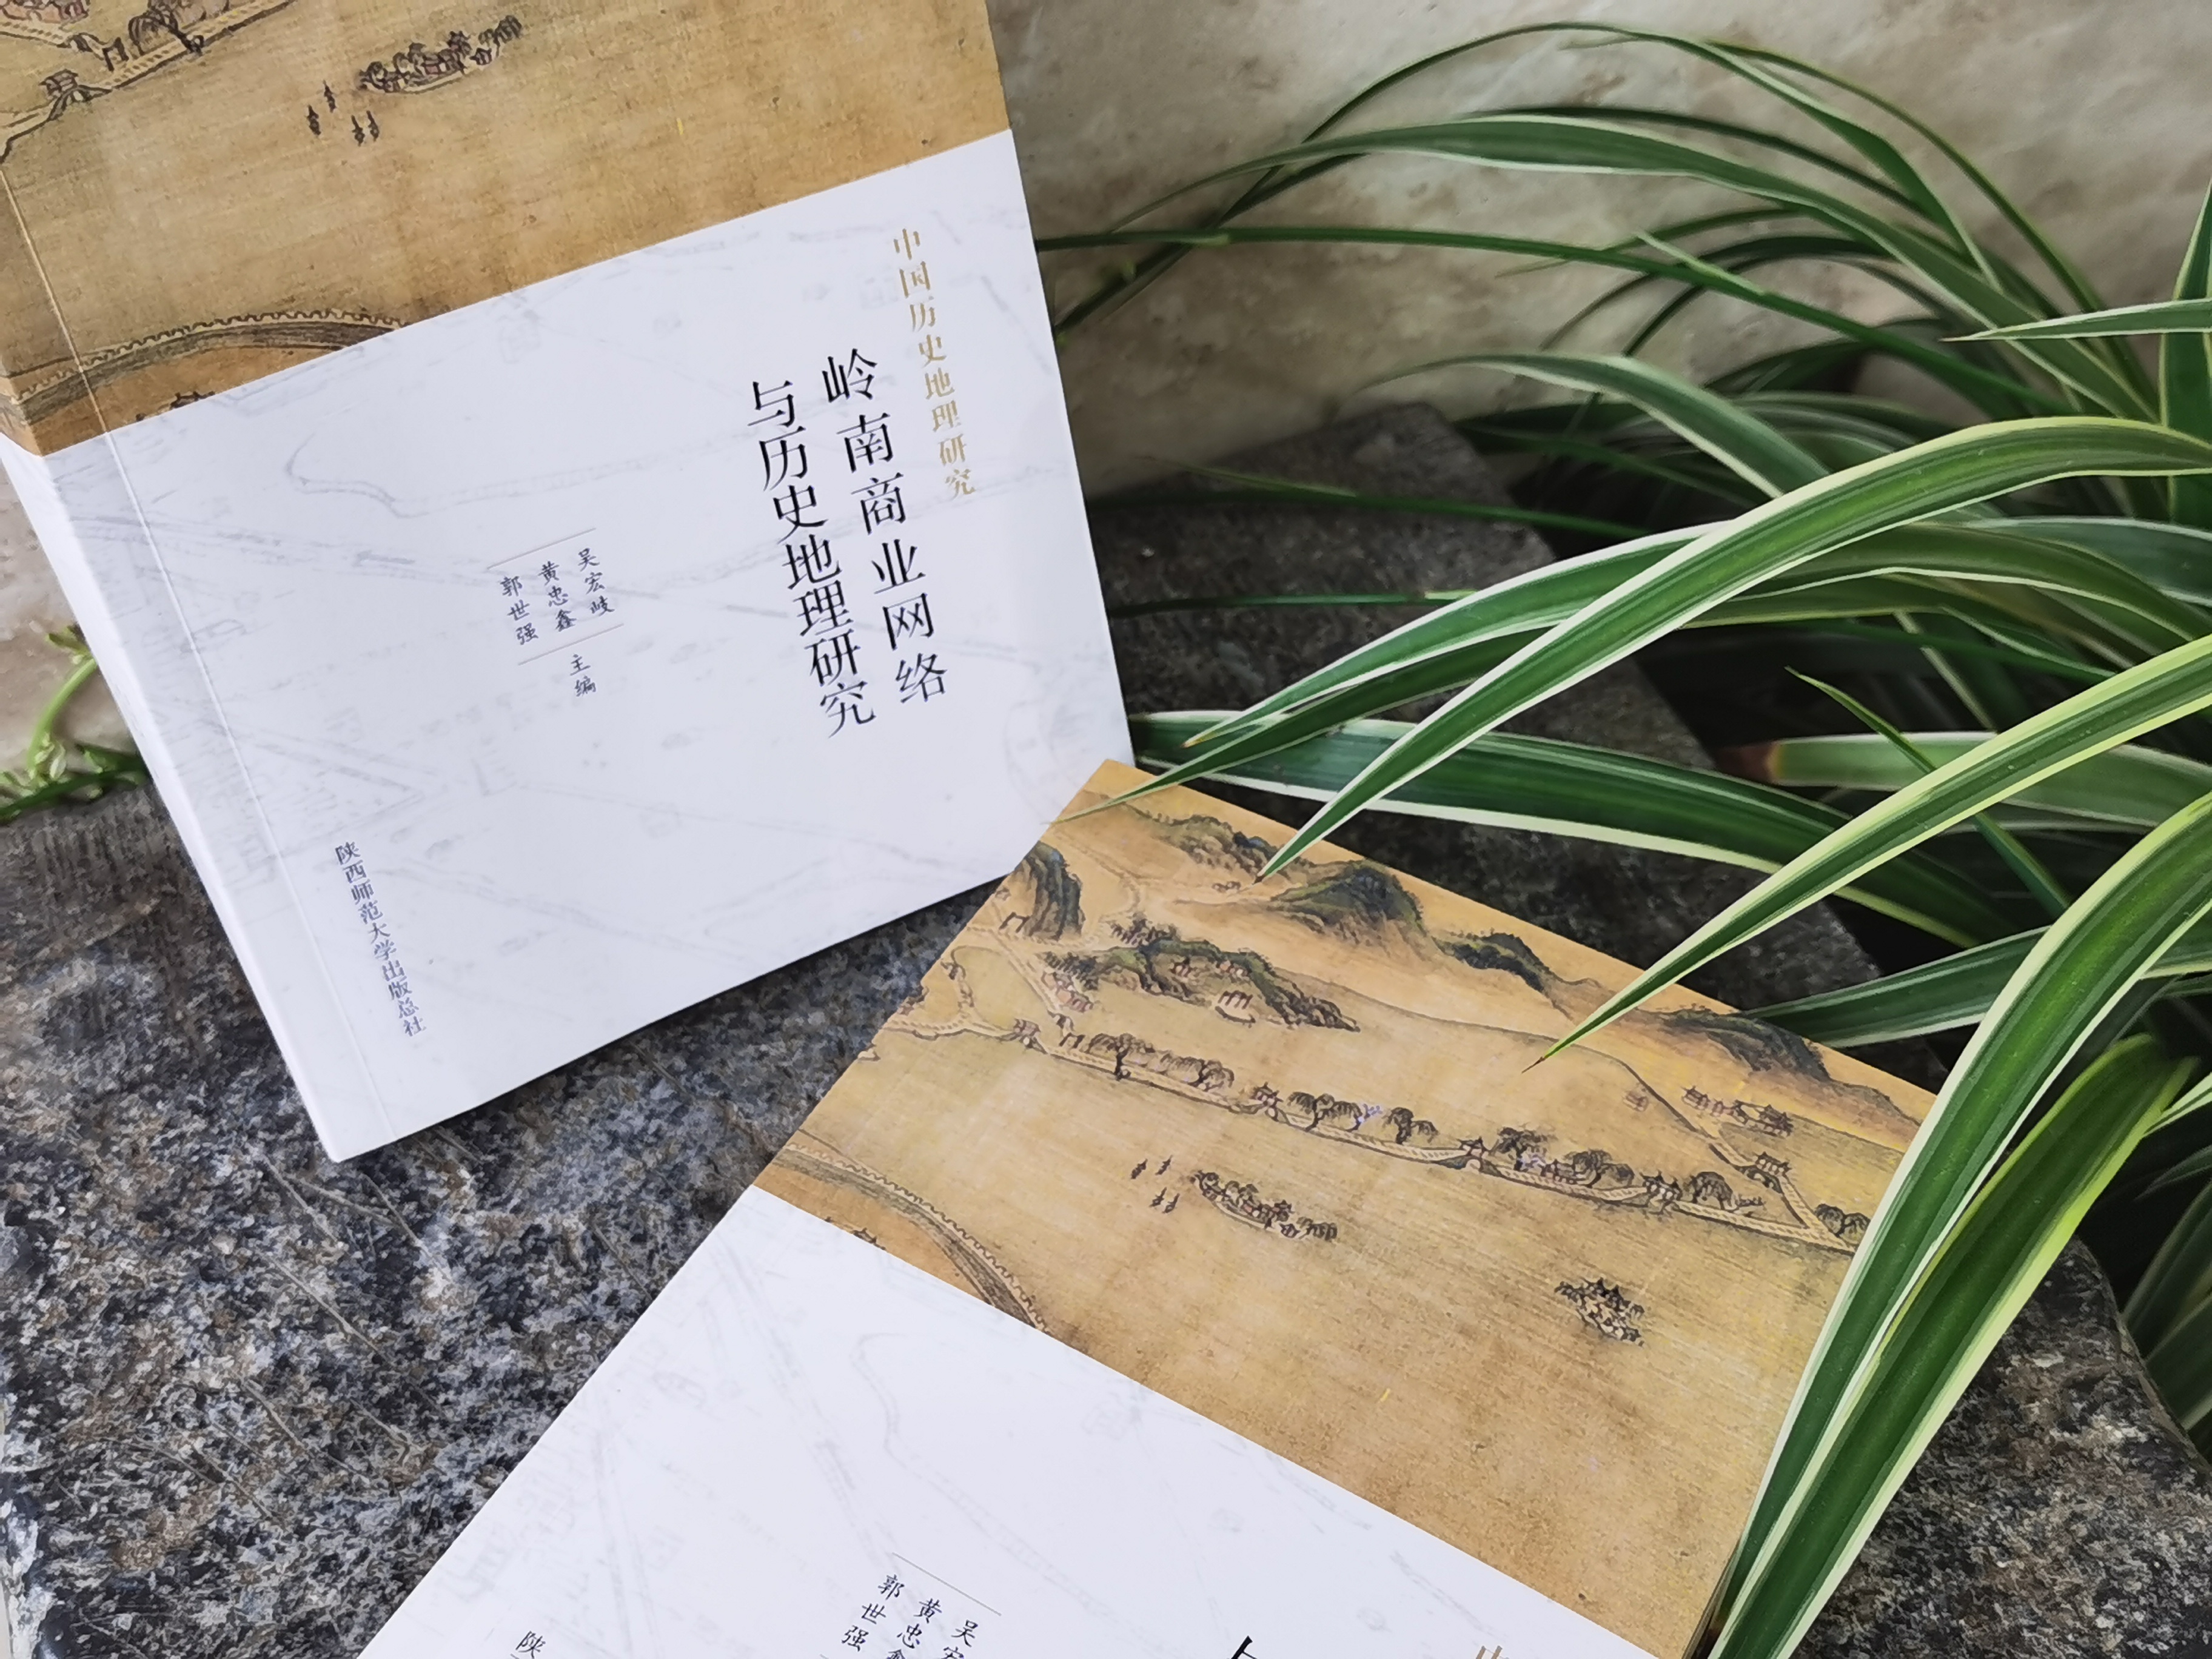 中国历史地理研究
岭南商业网络
与历史地理研究
吴宏岐
黄忠鑫
郭世强
主编
陕西师范大学出版总社
吴宏
黄忠鑫
郭世强
陕